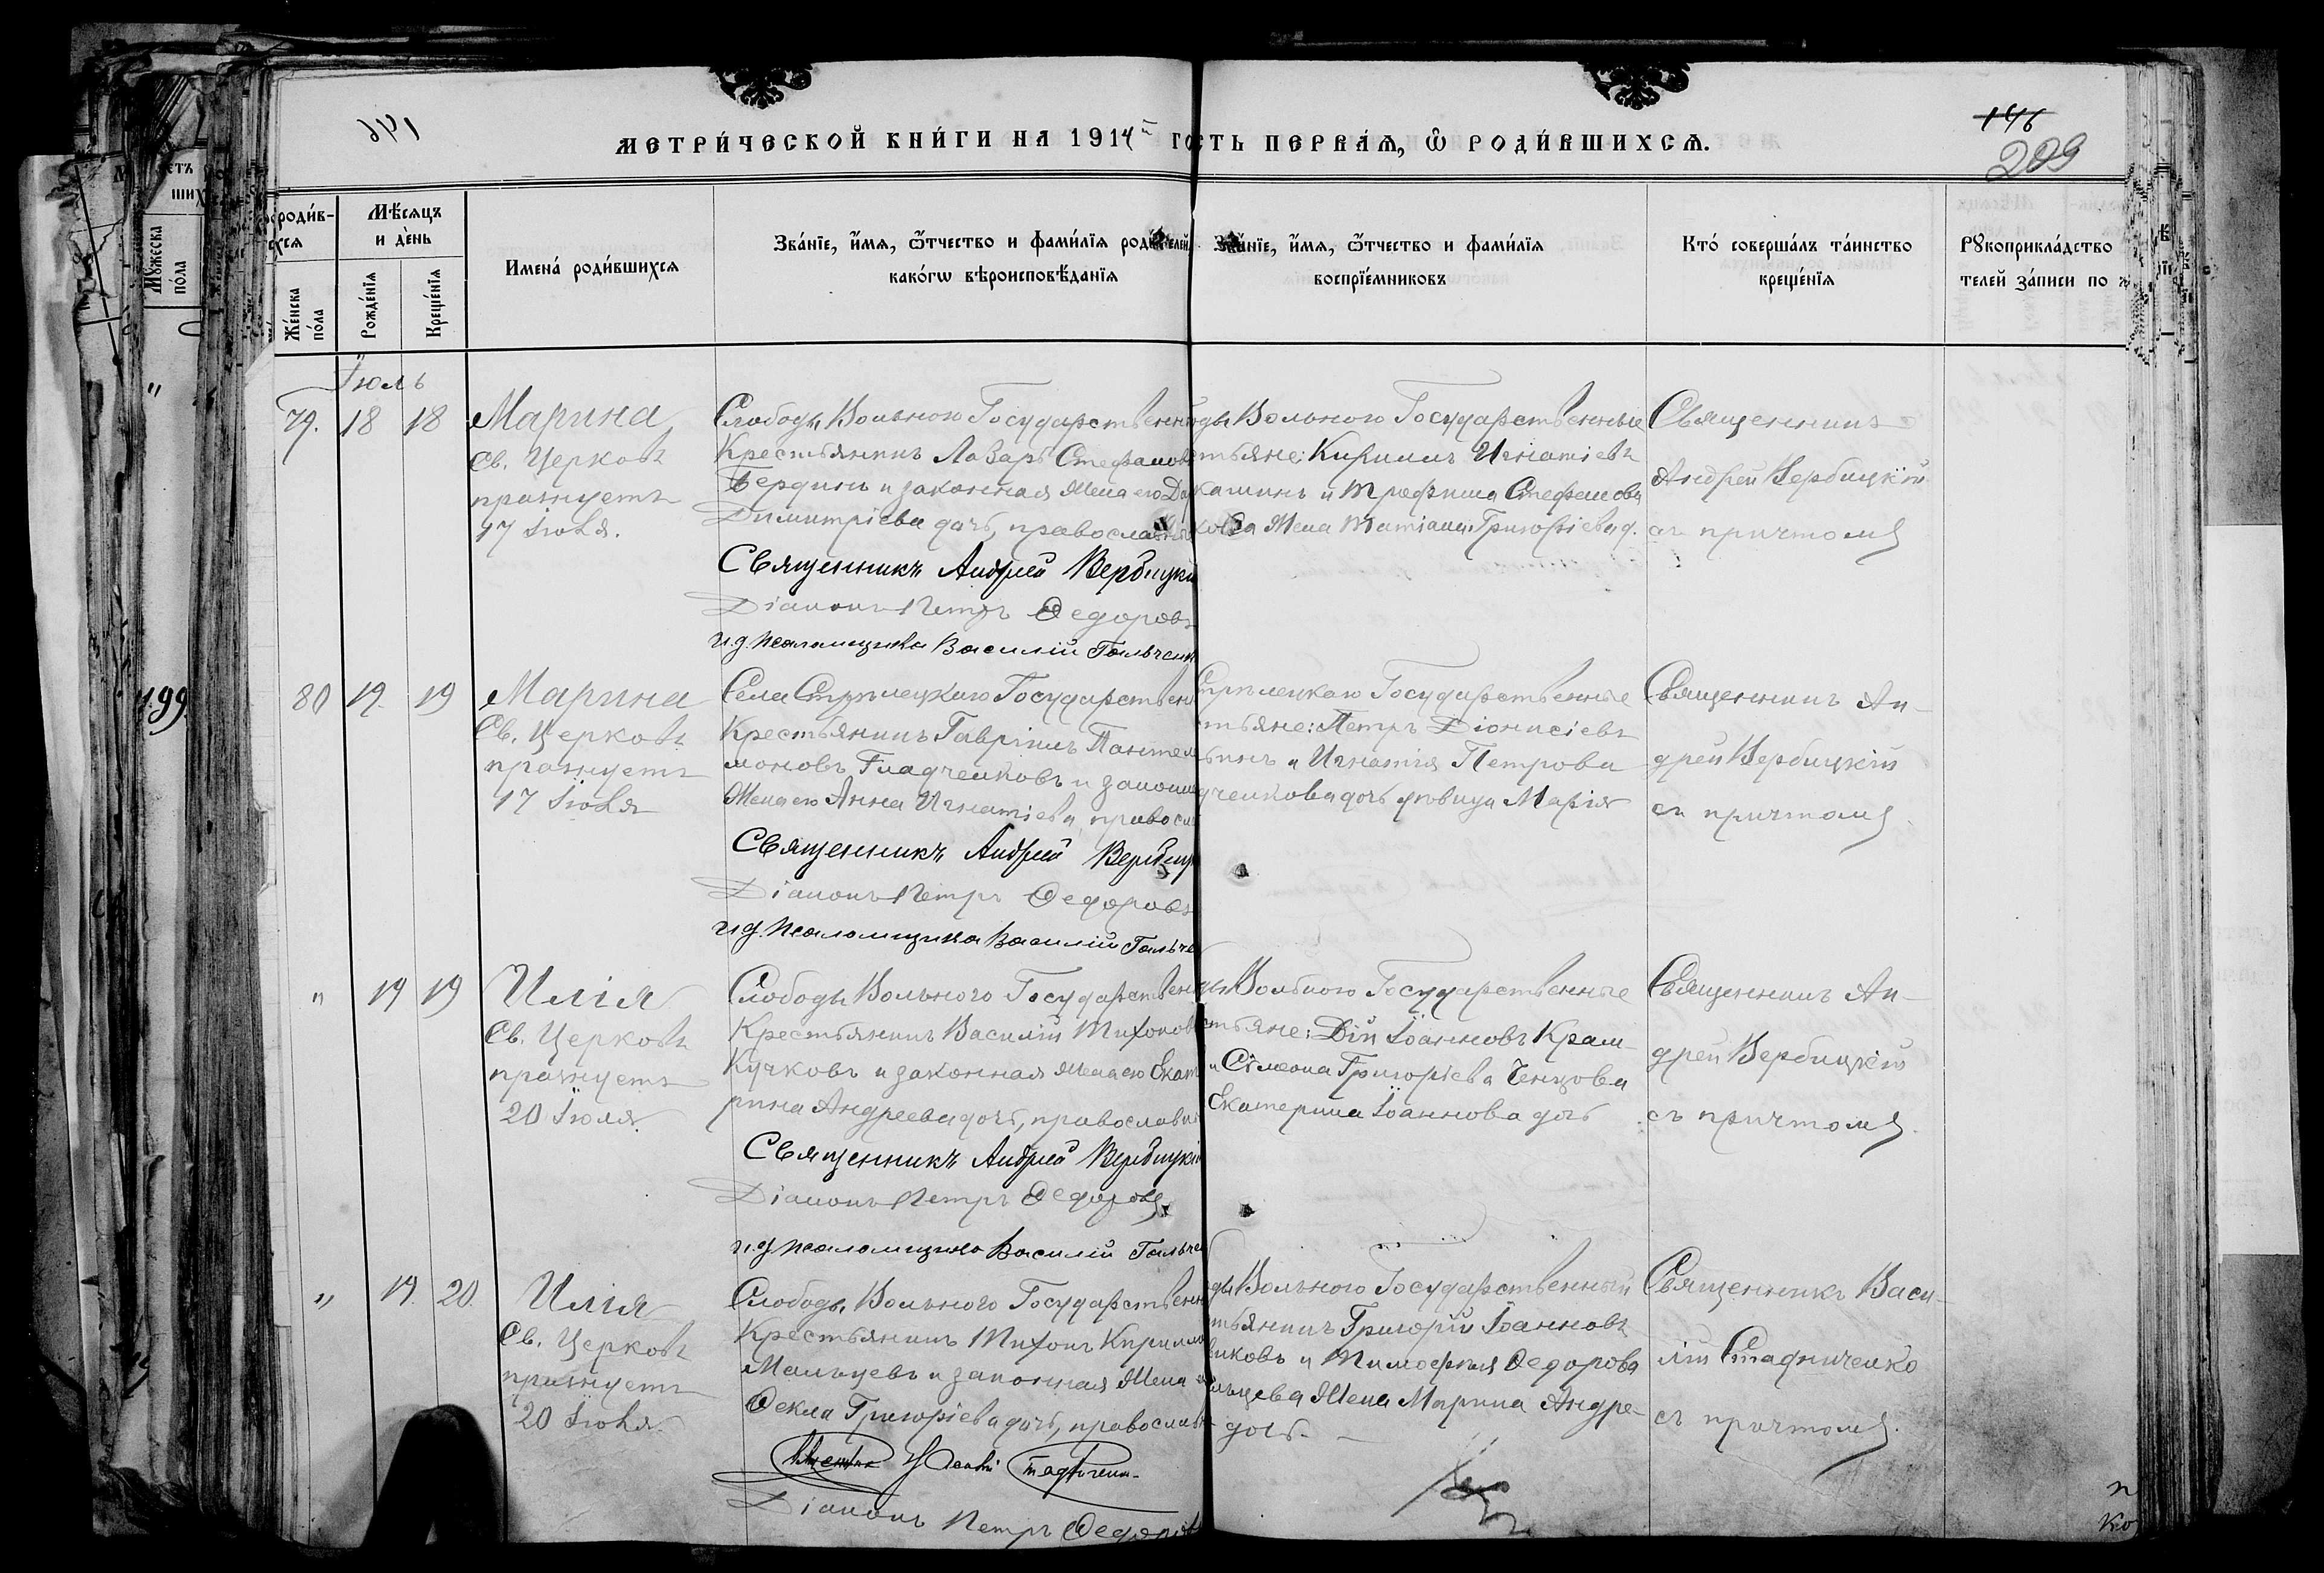 146
146
209
МЕТРИ́ЧЕСКОЙ КНИ́ГИ НА 1914й ГО
СТЬ ПЕРВА́Ѧ, Ѽ РОДИ́ВШИХСѦ.
роди́в-
хсѧ
Же́нска по́ла
Мѣ́сѧцъ и де́нь
Рожде́нїѧ
Креще́нїѧ
Имена́ роди́вшихсѧ
Зва́нїе, и҆́мѧ, ѻ҆́тчество и фами́лїѧ роди́телей,
како́гѡ вѣроисповѣ́данїѧ
Зва́нїе, и҆́мѧ, ѻ҆́тчество и фами́лїѧ
воспрїе́мниковъ
Кто́ соверша́лъ та́инство
креще́нїѧ
Рꙋкоприкла́дство
телей за́писи по
Му́жеска
по́ла
Іюль
79. 18 18
Марина
Св. Церковь
празнуетъ
17 Іюля.
Слободы Вольного Государственн
Крестьянинъ Лазарь Стефановъ
Бердинъ и законная жена его Да
Димитріева дочь, православн
Священникъ Андрей Вербицкій
Діаконъ Петръ Ѳедоровъ
и.д. псаломщика Василій Гальченк
ды Вольного Государственные
стьяне: Кириллъ Игнатіевъ
кашинъ и Трефила Стефанова
кова жена Татіана Григоріева д.
Священникъ
Андрей Вербицкій
съ причтомъ
199.
80 19. 19
Марина
Св. Церковь
празнуетъ
17 Іюля
Села Стрѣлецкаго Государствен
Крестьянинъ Гавріилъ Пантеле
моновъ Гладченковъ и законн
жена его Анна Игнатіева, правосл
Священникъ Андрей Вербиц
Діаконъ Петръ Ѳедоровъ
и.д. псаломщика Василій Гальче
Стрѣлецкаго Государственные
стьяне: Петръ Діонисіевъ
ъинъ и Игнатія Петрова
дченкова дочь дѣвица Марія
Священникъ Ан-
дрей Вербицкій
съ причтомъ.
" 19 19
Илія
Св. Церковь
празнуетъ
20 Іюля
Слободы Вольного Государствен
Крестьянинъ Василій Тихонов
Кучковъ и законная жена его Екате
рина Андреева дочь, православн
Священникъ Андрей Вербицкій
Діаконъ Петръ Ѳедоровъ
и.д. псаломщика Василій Гальче
ды Вольного Государственные
стьяне: Дій Іоанновъ Крам-
и Сімеона Григоріева Ченцова
Екатерина Іоаннова дочь
Священникъ Ан-
дрей Вербицкій
съ причтомъ.
" 19. 20.
Илія
Св. Церковь
празнуетъ
20 Іюля.
Слободы Вольного Государствен
Крестьянинъ Тихонъ Кирилло
Мальцевъ и законная жена
Ѳекла Григоріева дочь, православн
Діаконъ Петръ Ѳедоров
ды Вольного Государственный
стьянинъ Григорій Іоанновъ
виковъ и Тимоѳея Ѳедорова
льцева жена Марина Андре-
дочь.
Священникъ Васи-
лій Стадниченко
съ причтомъ.